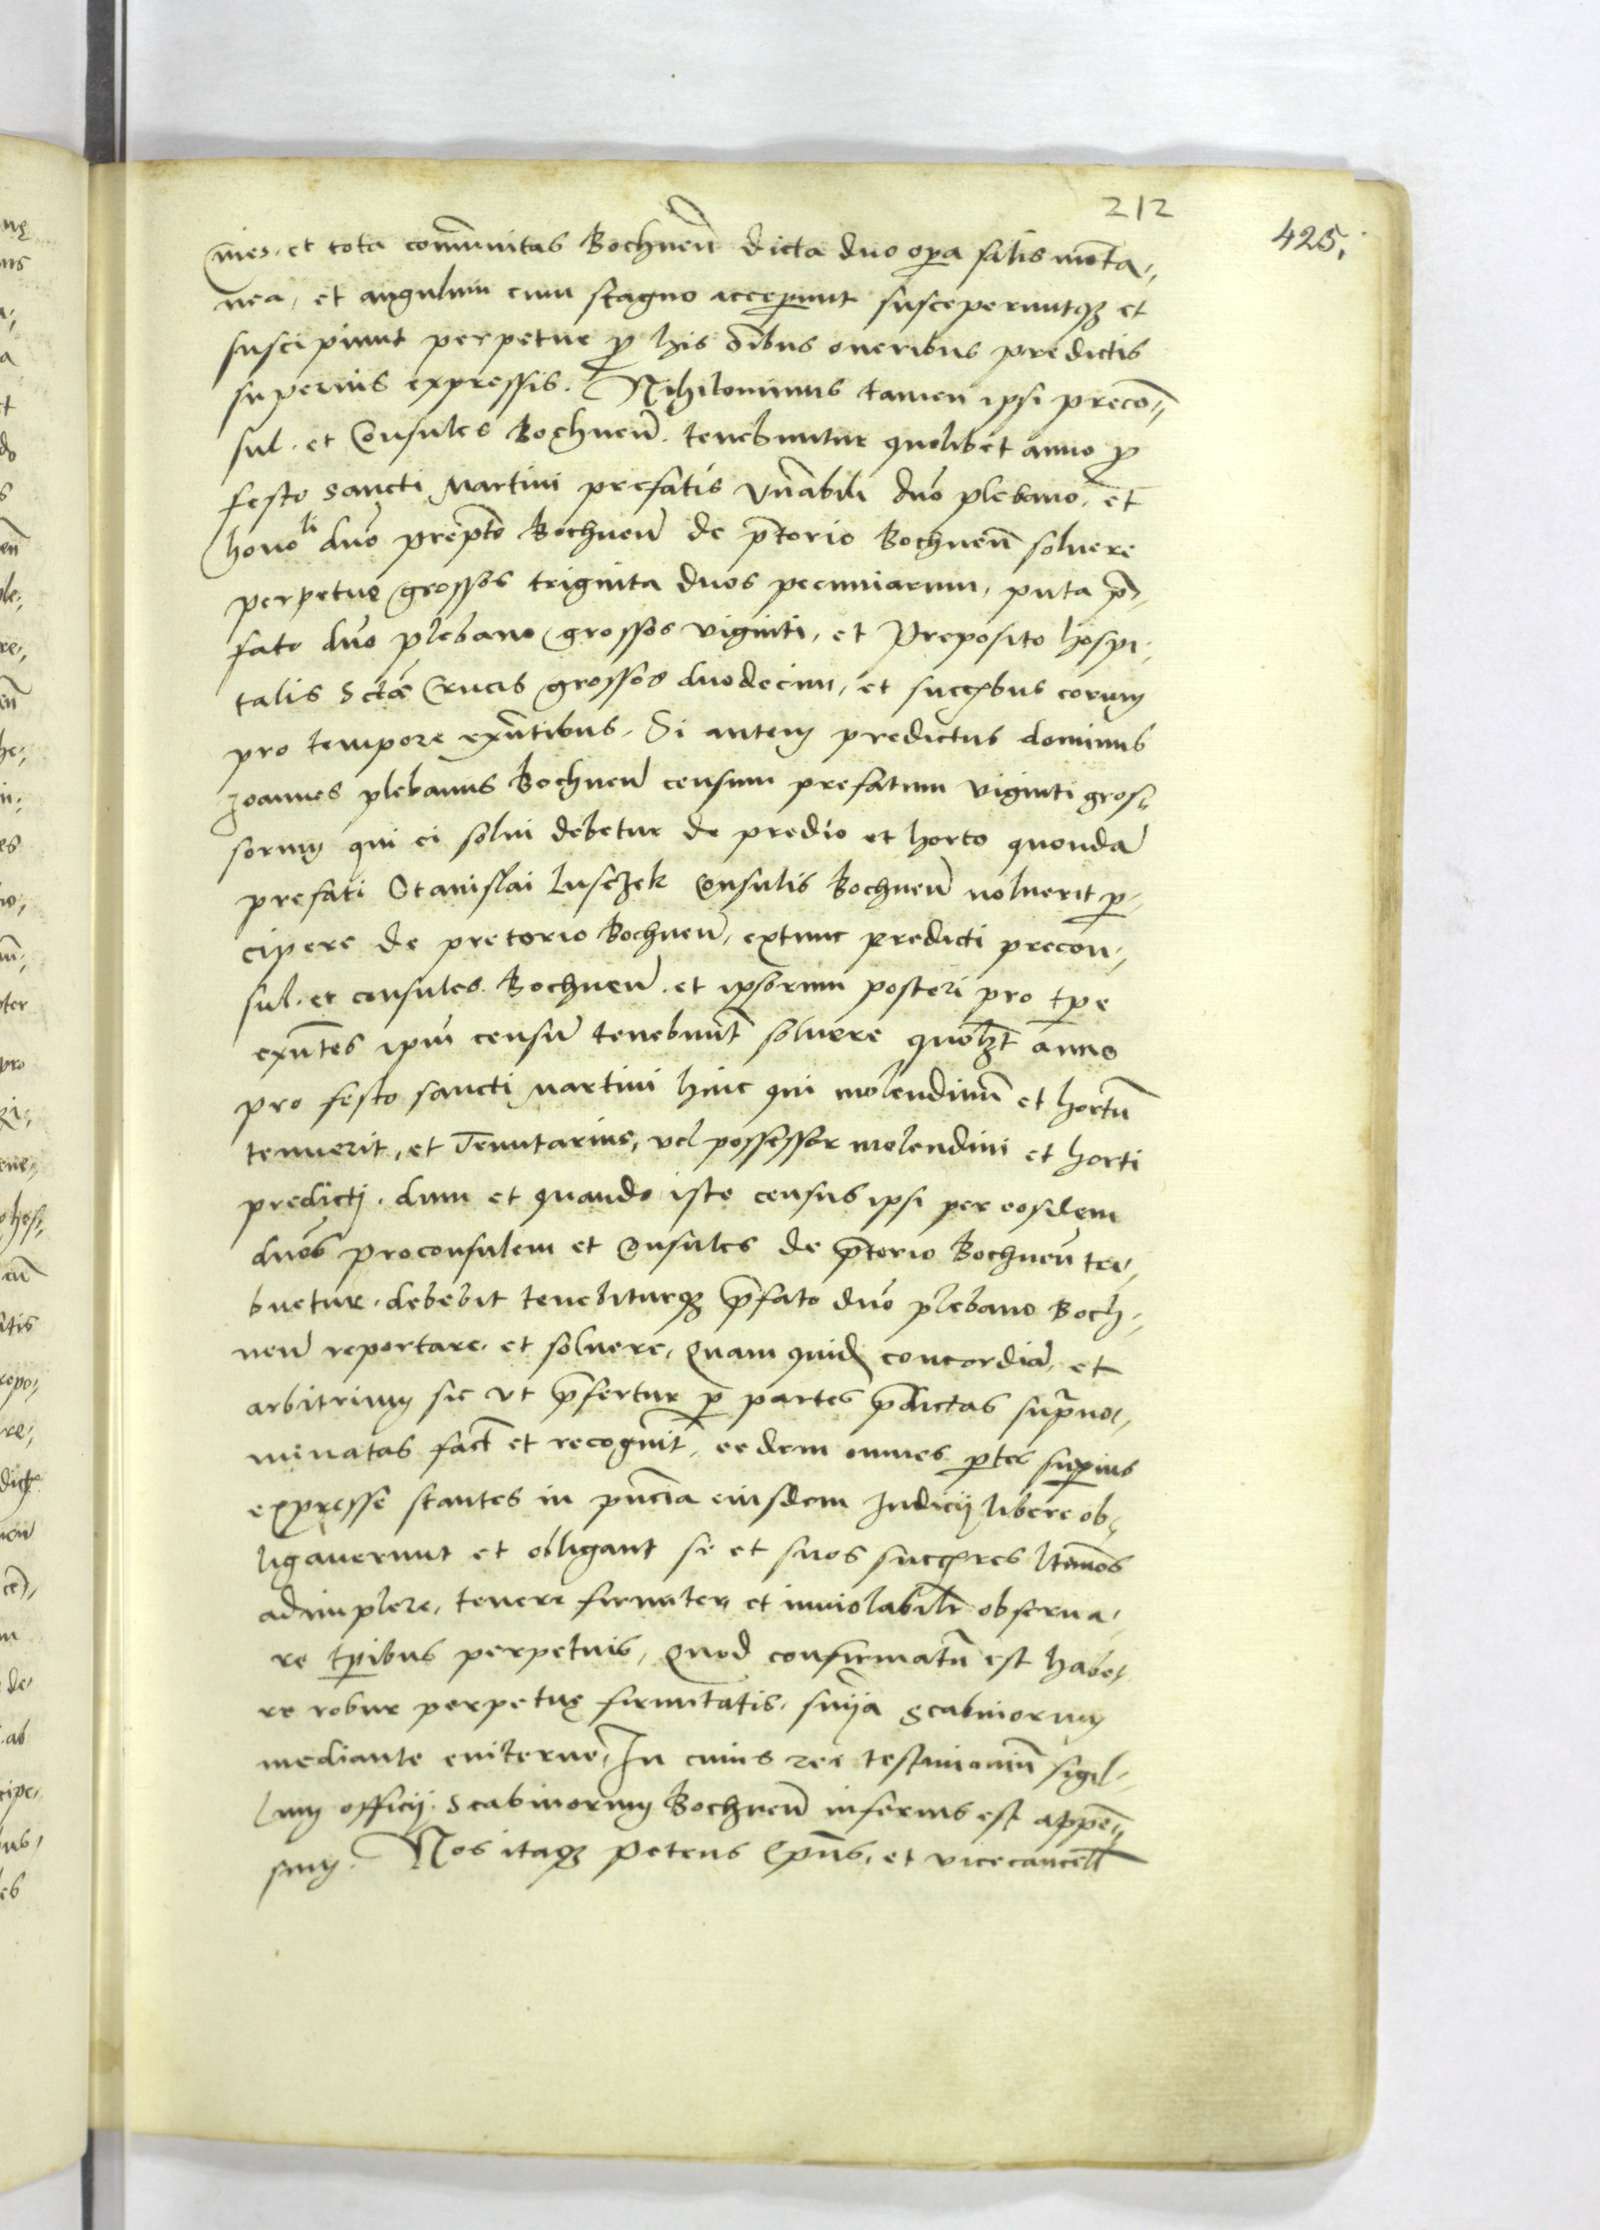 212
425.
mes. et tota com̄unitas Bochnen̄ dicta duo oꝑa salis mōta-
nea, et angulum cum stagno acceꝑunt susceperuntqꝫ et
suscipiunt perpetue ꝓ his oībus oneribus predictis
superius expressis. Nihilominus tamen ipsi precō-
sul. et Consules Bochnen̄. tenebuntur quolibet anno ꝓ
festo sancti Martini prefatis Vn̄abili dn̄o plebano. et
honoli dn̄o prep̄to Bochnen̄ de p̄torio Bochnen̄ soluere
perpetuę grossos triginta duos pecuniarum, puta p̄-
fato dn̄o plebano grossos viginti, et Preposito hospi-
talis Sctæ Crucis grossos duodecim, et succ̄ibus eorum
pro tempore exn̄tibus. Si autem predictus dominus
Joannes plebanus Bochnen̄ censum prefatum viginti gros-
sorum qui ei solui debetur de predio et horto quondā
prefati Stanislai Lusczek Consulis Bochnen̄ noluerit ꝑ-
cipere de pretorio Bochnen̄, extunc predicti precon-
sul. et consules. Bochnen̄. et ipsorum posteri pro tp̄e
exn̄tes ipm̄ censū tenebunt̄ soluere quolꝫt anno
pro festo sancti Martini huic qui molendinū et hortū
tenuerit, et Tenutarius, vel possessor molendini et horti
predicti. dum et quando iste census ipsi per eosdem
dn̄os proconsulem et Consules de p̄torio Bochnen̄ tri-
buetur. debebit tenebiturqꝫ p̄fato dn̄o plebano Boch-
nen̄ reportare. et soluere, Quam quidē concordiā, et
arbitrium sic vt p̄fertur ꝑ partes p̄dictas supͬno-
minatas fact̄ et recognit̄, eedem omnes ꝑtes suꝑius
expresse stantes in pn̄cia eiusdem Judicij libere ob-
ligauerunt et obligant se et suos succ̄res ltīmos
adimplere, tenere firmiter, et inuiolabilr̄ obserua-
re tp̄ibus perpetuis, Quod confirmatū est habe-
re robur perpetuę firmitatis. sn̄ia Scabinorum
mediante euiterne, In cuius rei testimoniū sigil-
lum officij. Scabinorum Bochnen̄ inferius est appē-
sum. Nos itaqꝫ Petrus Ep̄us, et vicecancell̄